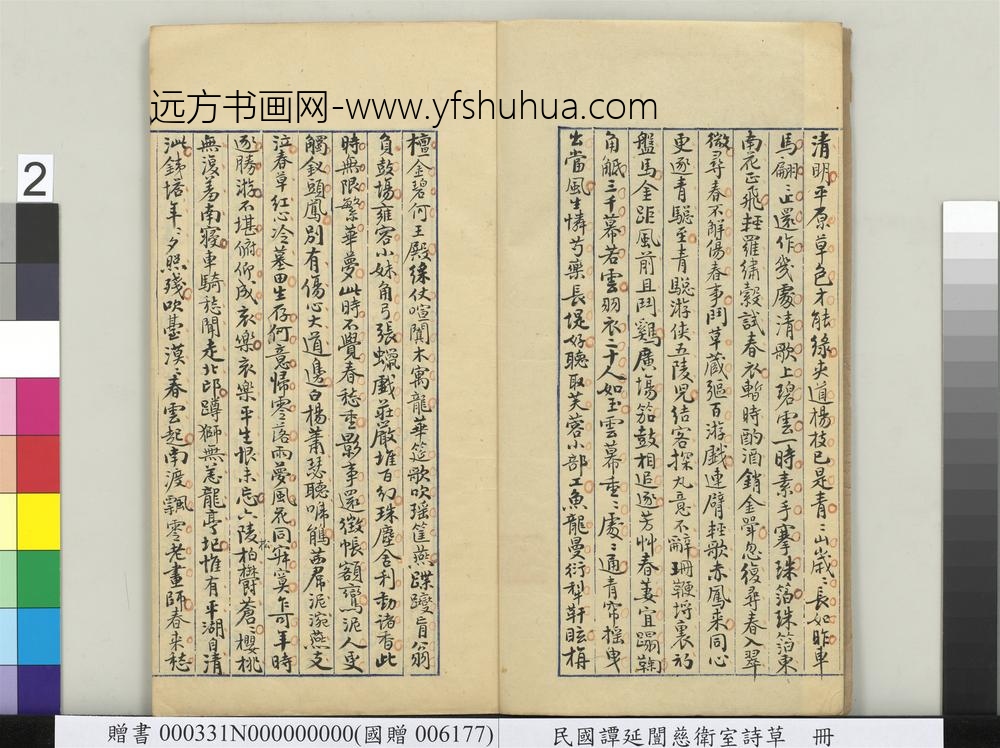 远方书画网-www.yfshuhua.com
清明平原草色才能綠夾道楊枝已是青〻山歲〻長如昨車
馬翩〻止還作幾處清歌上碧雲一時素手搴珠箔珠箔東
南花正飛輕羅繡縠試春衣暫時酌酒銷金斝忽復尋春入翠
微尋春不解傷春事鬥草藏彄百游戲連臂輕歌赤鳳来同心
更逐青驄至青驄游俠五陵兒結客探丸意不辭珊鞭埒裏初
盤馬金距風前且鬥鷄廣場笳鼓相追逐芳艸春萋宜蹋鞠
角觝三千幕若雲羽衣二十人如玉雲幕垂〻處〻通青帘搖曳
出當風生憐芍藥長堤好聽取芙蓉小部工魚龍曼衍犁軒眩梅
檀金碧何王殿綵仗喧闐木寓龍華筵歌吹瑶筐燕蹀躞盲翁
負鼓場雍容小妹角弓張蠟戲莊嚴堆百幻珠塵舍利動諸香此
時無限繁華夢此時不覺春愁重影事還徵帳額鸞泥人更
觸釵頭鳳別有傷心大道邊白楊蕭瑟聽啼鵑茜帬泥涴燕支
泣春草紅心冷墓田生存何意歸零落雨夢風花同寂寞乍可年時
逐勝游不堪俯仰成哀樂哀樂平生恨未忘六陵松柏鬱蒼〻櫻桃
無復羞南寢車騎愁聞走北邙蹲獅無恙龍亭圯惟有平湖自清
泚銕塔年〻夕照殘吹臺漠〻春雲起南渡飄零老畫師春来愁
2
贈書 000331N000000000(國贈 006177)
民國譚延闓慈衛室詩草 冊